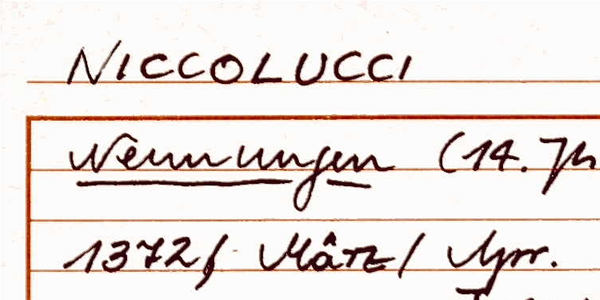 NICCOLUCCI
Nennungen (14. Jh
1372, März / Apr.